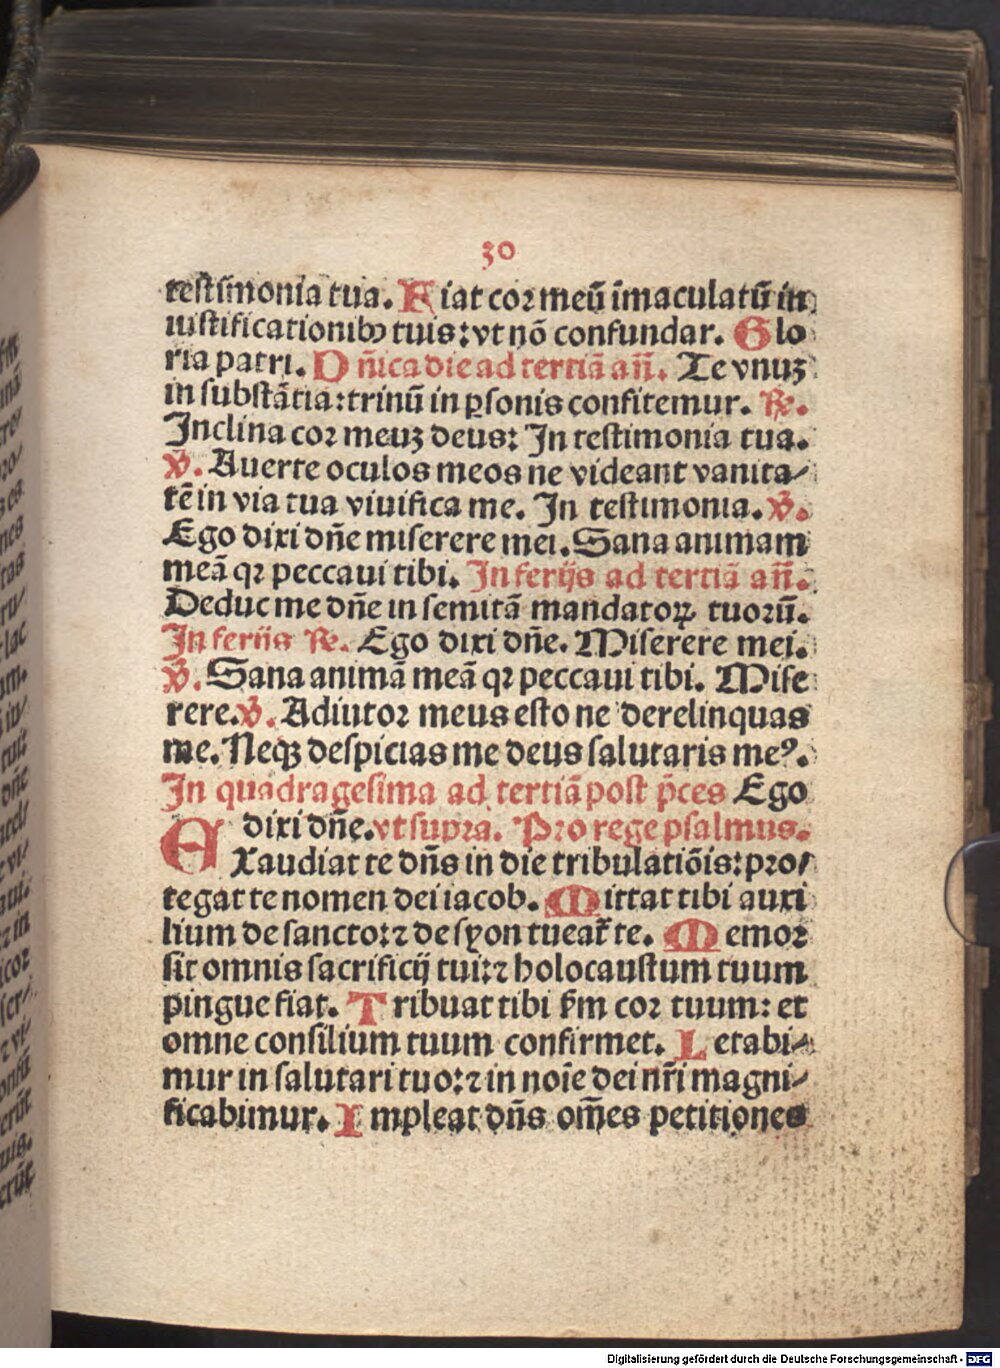 30
testimonia tua. Fiat cor meū īmaculatū in
iustificationibꝰ tuis: vt nō confundar. Glo
ria patri. Dñica die ad tertiā añ. Te vnuꝫ
in substātia: trinū in ꝑsonis confitemur. ℟.
Inclina cor meuꝫ deus: In testimonia tua.
℣. Auerte oculos meos ne videant vanita⸗
tē in via tua viuifica me. In testimonia. ℣.
Ego dixi dñe miserere mei. Sana animam
meā qꝛ peccaui tibi. In ferijs ad tertiā añ.
Deduc me dñe in semitā mandatoꝝ tuorū.
In ferijs ℟. Ego dixi dñe. Miserere mei.
℣. Sana animā meā qꝛ peccaui tibi. Mise
rere. ℣. Adiutor meus esto ne derelinquas
me. Neqꝫ despicias me deus salutaris meꝰ.
In quadragesima ad tertiā post p̄ces Ego
dixi dñe. vt supra. Pro rege psalmus.
EXaudiat te dñs in die tribulatiōis: pro⸗
tegat te nomen dei iacob. Mittat tibi auxi
lium de sancto: ⁊ de syon tueat᷑ te. Memor
sit omnis sacrificij tui: ⁊ holocaustum tuum
pingue fiat. Tribuat tibi ẜm cor tuum: et
omne consilium tuum confirmet. Letabi⸗
mur in salutari tuo: ⁊ in noīe dei nr̄i magni⸗
ficabimur. Impleat dñs om̄es petitiones
Digitalisierung gefördert durch die Deutsche Forschungsgemeinschaft - DFG